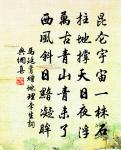 昆仑宇宙一株石
柱地撑天日夜浮
万古青山青未了
西风斜日黯凝眸
马廷鸾赠地理李生词
典国集